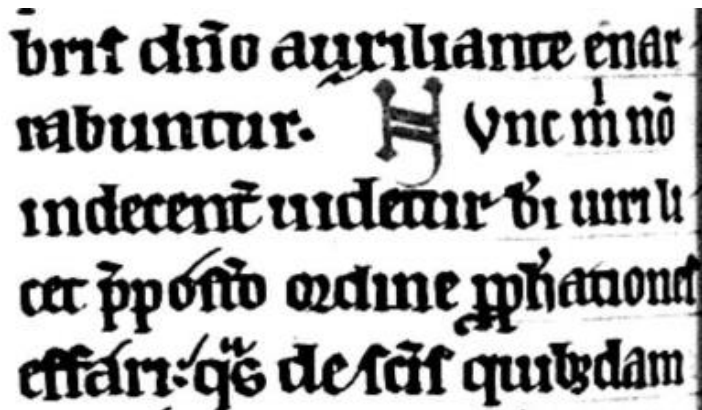 bris dn̄o auxiliante enar
rabuntur. H Vnc m̍ nō
indecent̄ uidetur b̍i uiri li
cet p̄posito ordine ꝓph̄ationes
effari: qͣs de sc̄is quibꝫdam